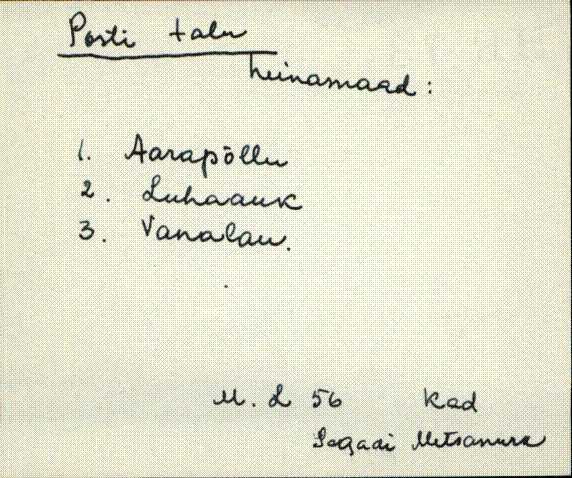 Posti talu
heinamaad:
1. Aarapõllu
2. Luhaauk
3. Vanalau.
M. L 56 Kad
Sagadi Metsanurk